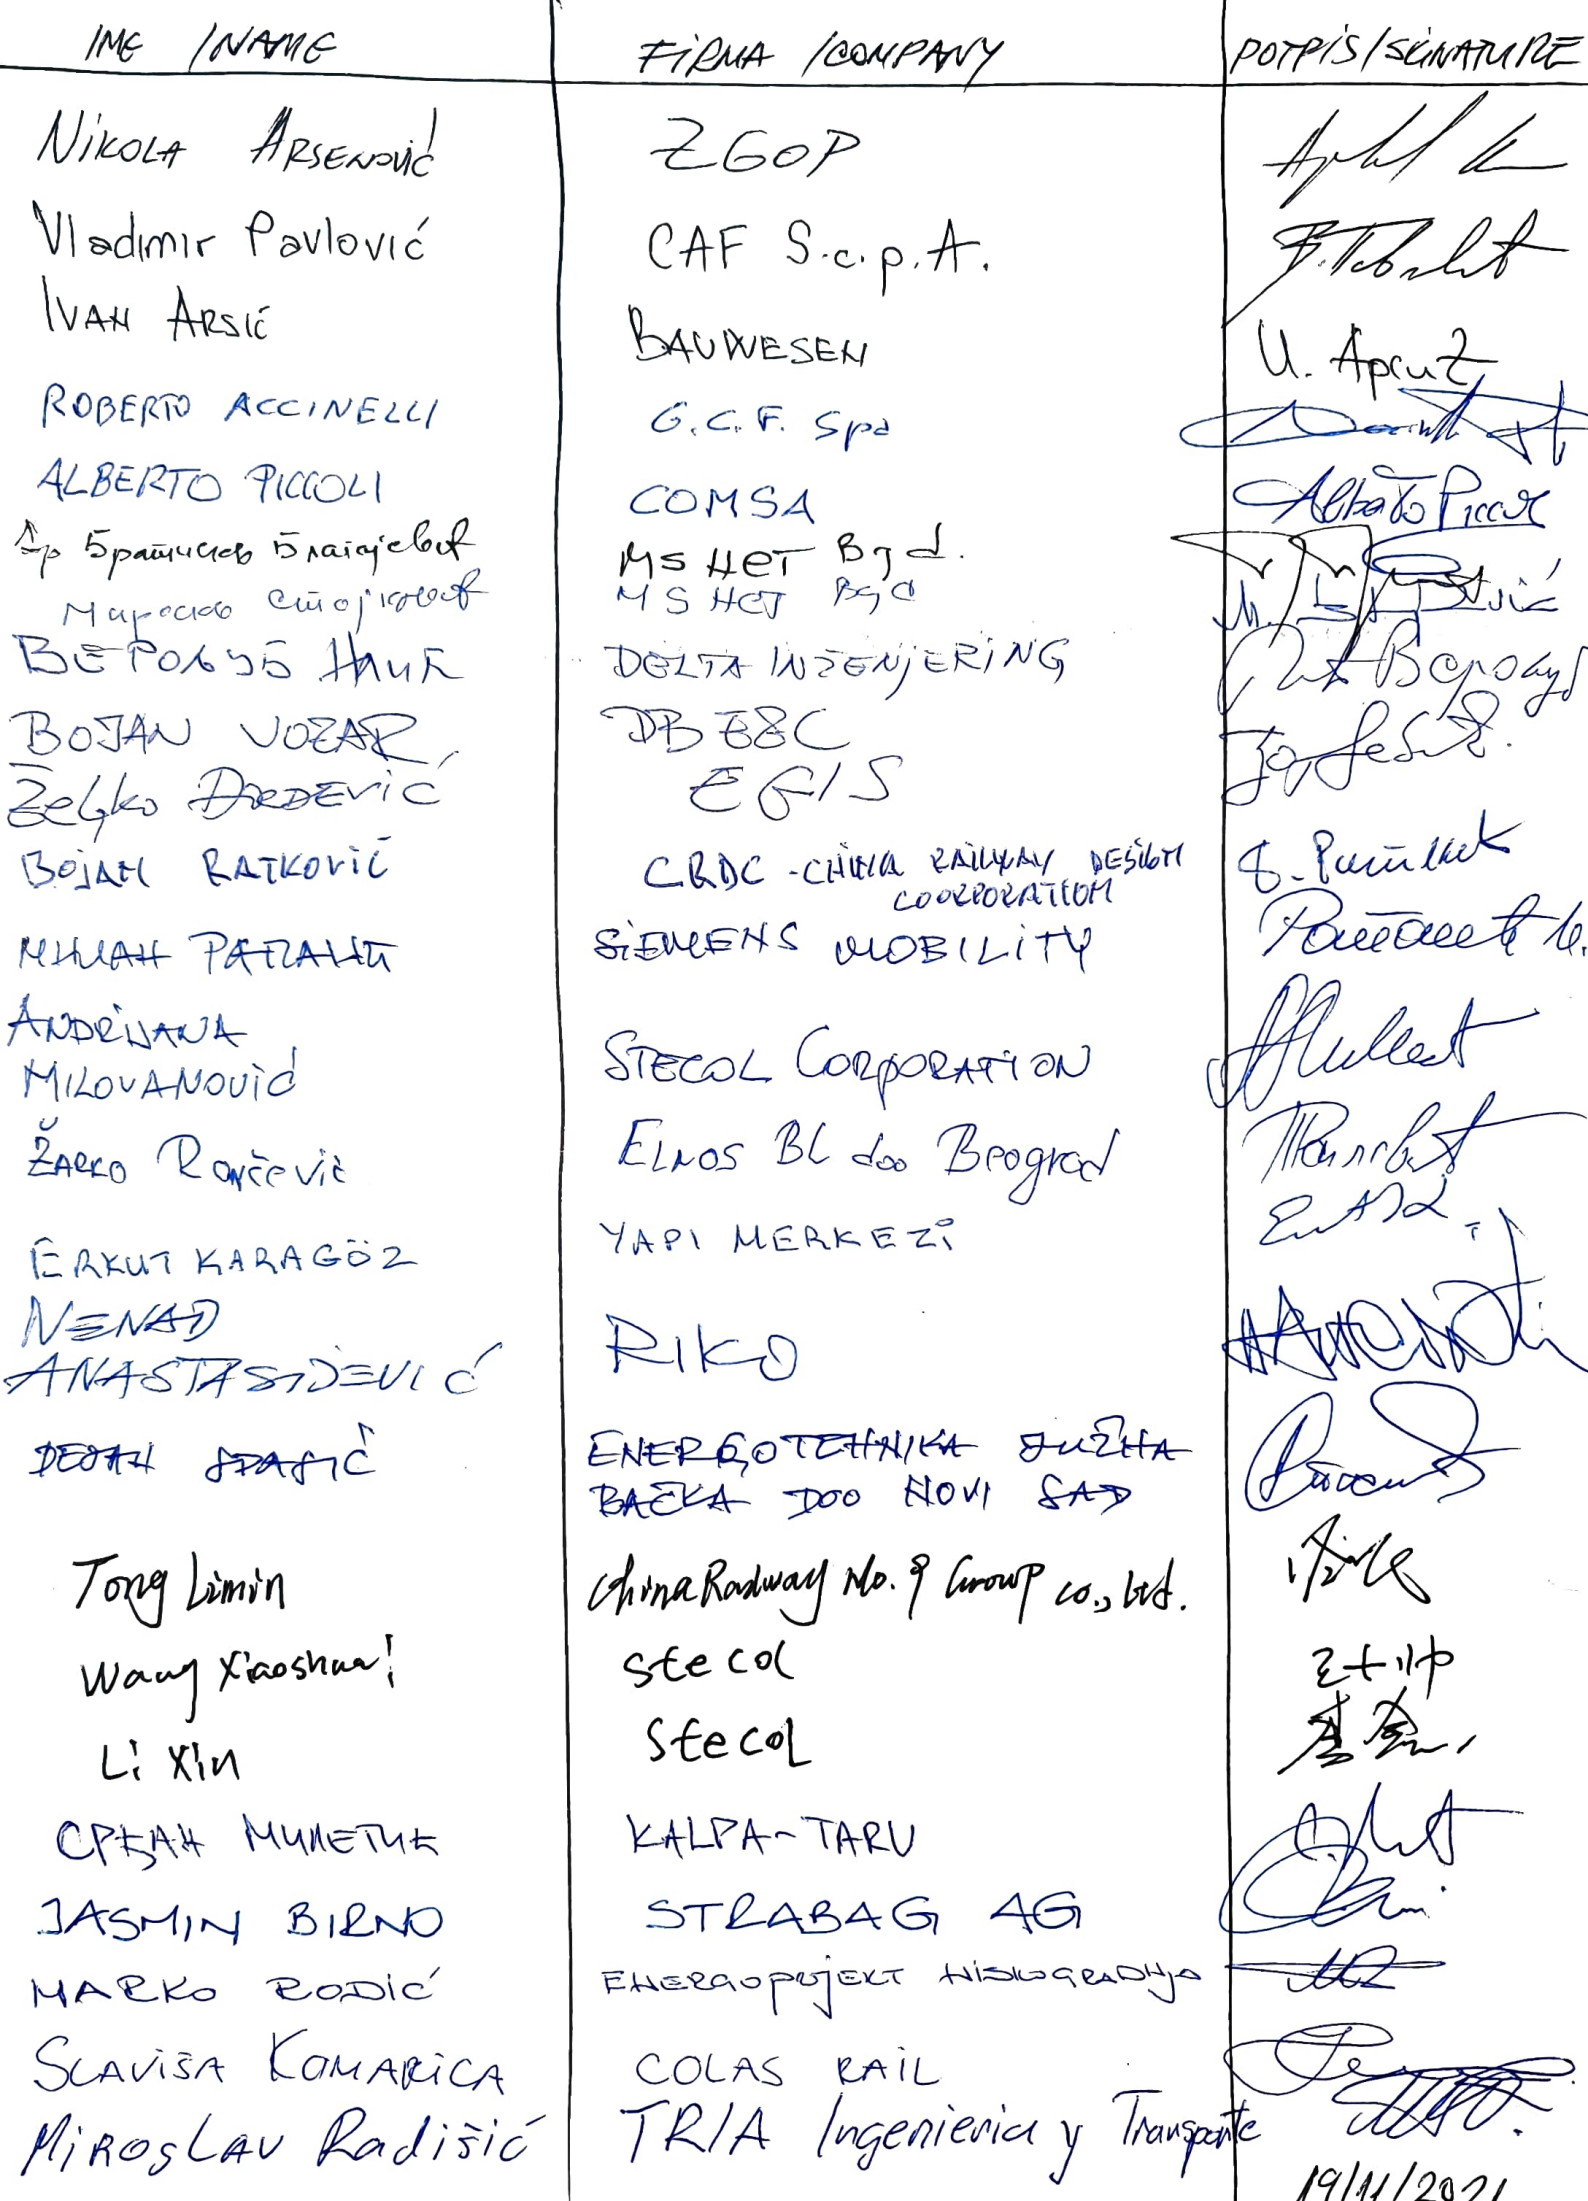 IME /NAME FiRMA /COMPANY POTPIS/SIGNATURE
NiKOLA ARSENOViĆ ZGOP
Vladimir Pavlović CAF S.c.p.A.
IVAN ARSIĆ BAUWESEN
И. Арсић
ROBERTO ACCINELLI G.C.F. Spa
ALBERTO PICCOLI COMSA
Alberto Piccoli
Др Братислав Благојевић MS НЕТ Bgd.
Мирослав Стојковић MS НЕТ Bgd
DELTA INŽENJERING
BOJAN VOZAR DB E&C
Željko ĐORĐEVIĆ EGIS
BOJAN RATKOVIĆ CRDC - CHINA RAILWAY DESIGN
COORPORATION
МИЛАН SIEMENS MOBILITY
ANDRIJANA
MILOVANOVIĆ STECOL CORPORATION
ŽARKO Rončević ELNOS BL doo Beograd
ERKUT KARAGÖZ YAPI MERKEZİ
NENAD
ANASTASIJEVIĆ RIKO
DEJAN SPASIĆ ENERGOTEHNIKA JUŽNA
BAČKA DOO NOVI SAD
Tong Limin China Railway No.9 Group co., Ltd.
Wang Xiaoshuai stecol
Li Xin stecol
СРЂАН МИЛЕТИЋ KALPA-TARU
JASMIN BIRNO STRABAG AG
MARKO RODIĆ ENERGOPROJEKT NISKOGRADNJA
SLAVIŠA KOMARICA COLAS RAIL
MIROSLAV Radišić TRIA Ingenieria y Transporte
19/11/2021